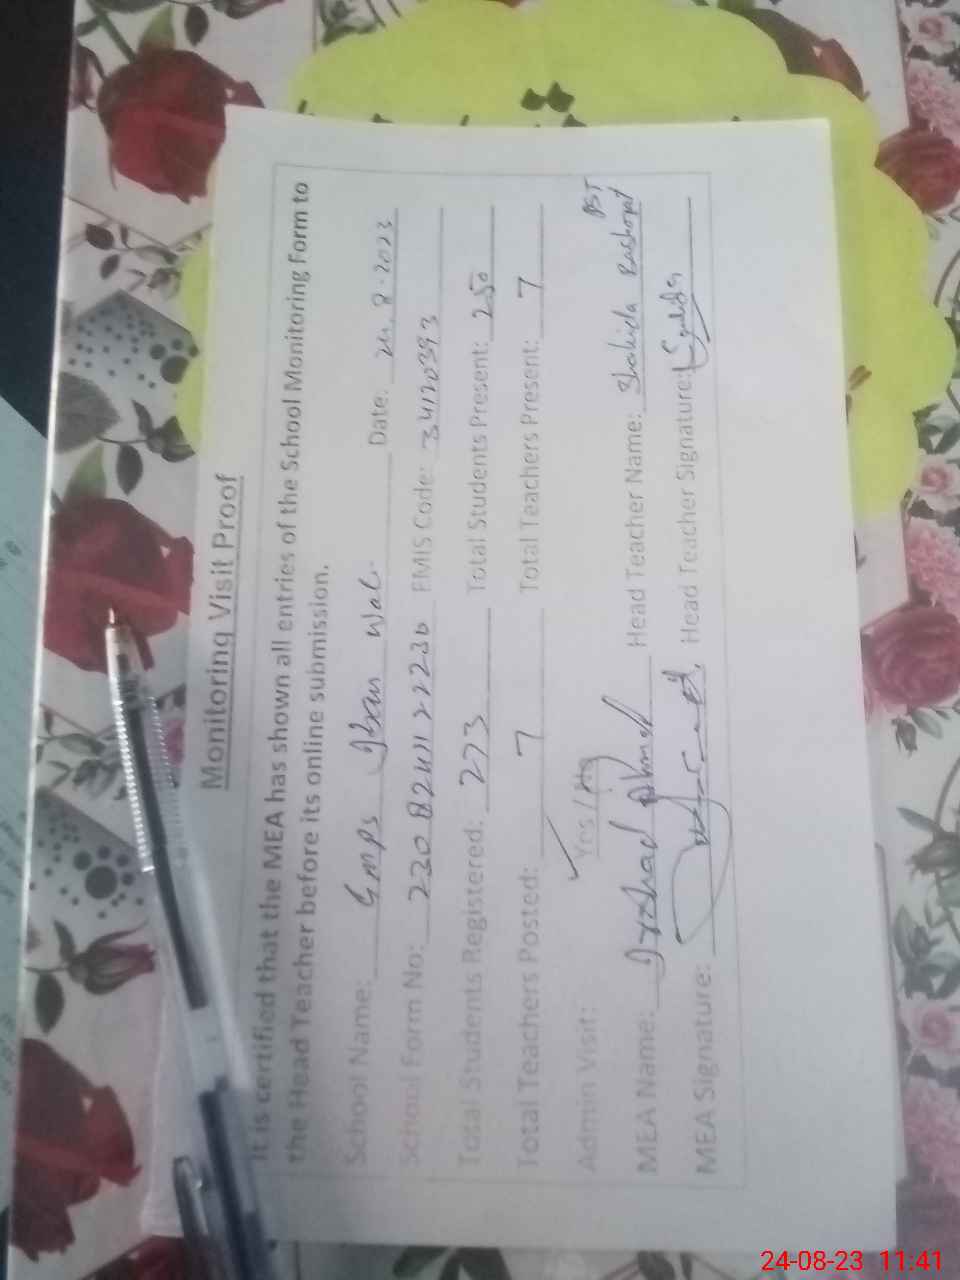 Monitoring Visit Proof
It is certified that the MEA has shown all entries of the School Monitoring Form to
the Head Teacher before its online submission.
School Name: GMPS Wali Date: 24.8.2023
School Form No: EMIS Code: 34120393
Total Students Registered: 273 Total Students Present: 250
Total Teachers Posted: 7 Total Teachers Present: 7
Admin Visit: Yes / No
MEA Name: Irshad Ahmed Head Teacher Name: Shahida PST
MEA Signature: Head Teacher Signature:
24-08-23 11:41